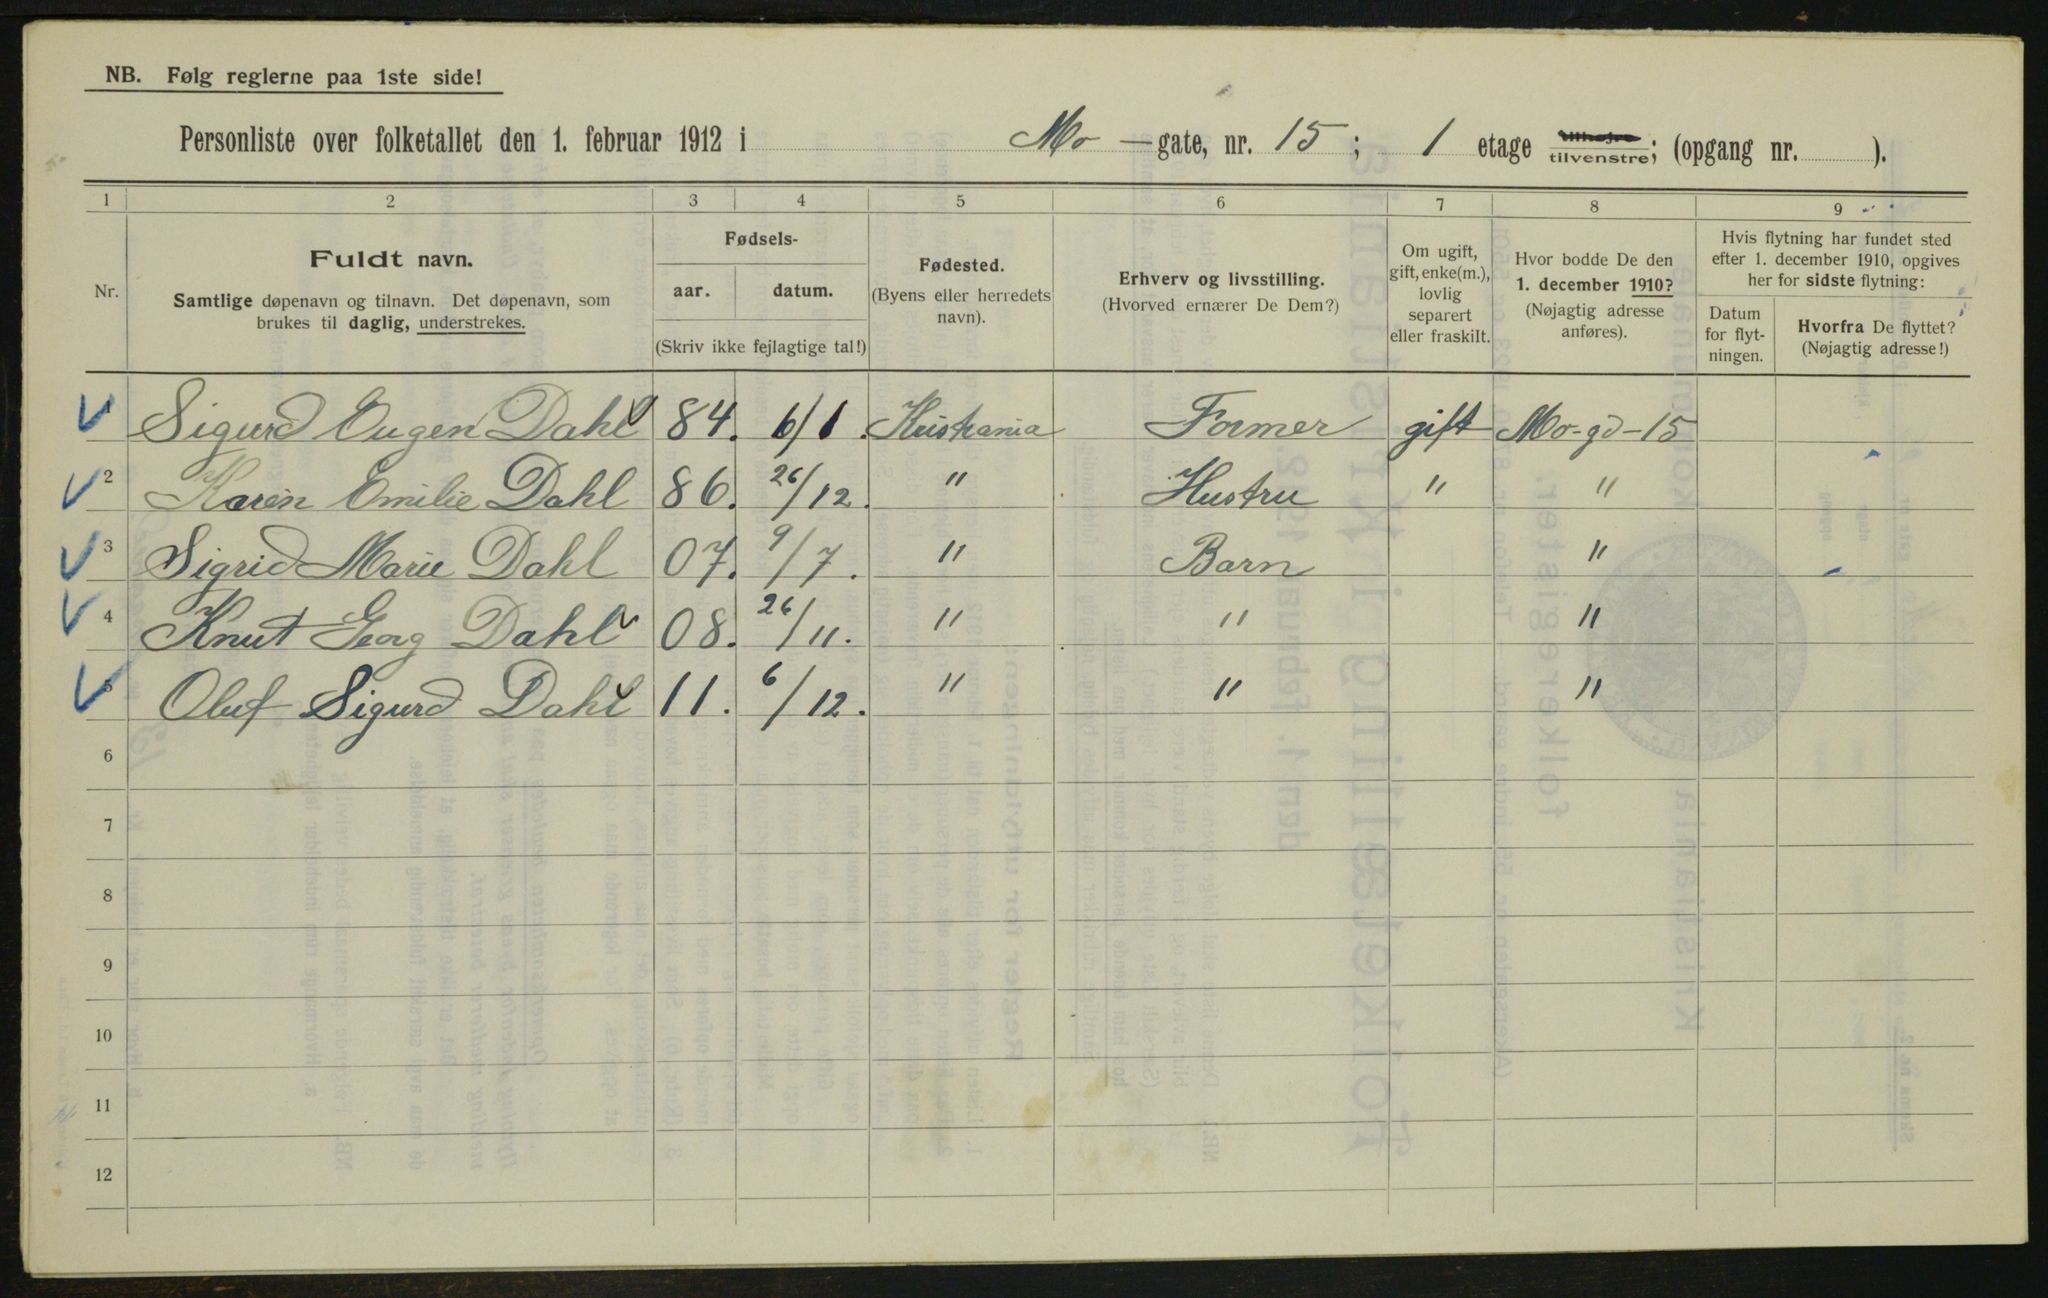 NB. Følg reglerne paa 1ste side!
Personliste over folketallet den 1. februar 1912 i Mo — gate, nr. 15 ; 1 etage tilhøire tilvenstre; (opgang nr. ).
1 2 3 4 5 6 7 8 9
Nr.
Fuldt navn.
Samtlige døpenavn og tilnavn. Det døpenavn, som
brukes til daglig, understrekes.
Fødsels-
aar. datum.
(Skriv ikke fejlagtige tal!)
Fødested.
(Byens eller herredets
navn).
Erhverv og livsstilling.
(Hvorved ernærer De Dem?)
Om ugift,
gift, enke(m.),
lovlig
separert
eller fraskilt.
Hvor bodde De den
1. december 1910?
(Nøjagtig adresse
anføres).
Hvis flytning har fundet sted
efter 1. december 1910, opgives
her for sidste flytning:
Datum
for flyt-
ningen.
Hvorfra De flyttet?
(Nøjagtig adresse!)
Sigurd Eugen Dahl 84. 6/1. Kristiania Former gift Mo-gd-15
2 Karen Emilie Dahl 86. 26/12. " Hustru " "
3 Sigrid Marie Dahl 07. 9/7. " Barn "
4 Knut Georg Dahl 08. 26/11. " " "
5 Oluf Sigurd Dahl 11. 6/12. " " "
6
7
8
9
10
11
12